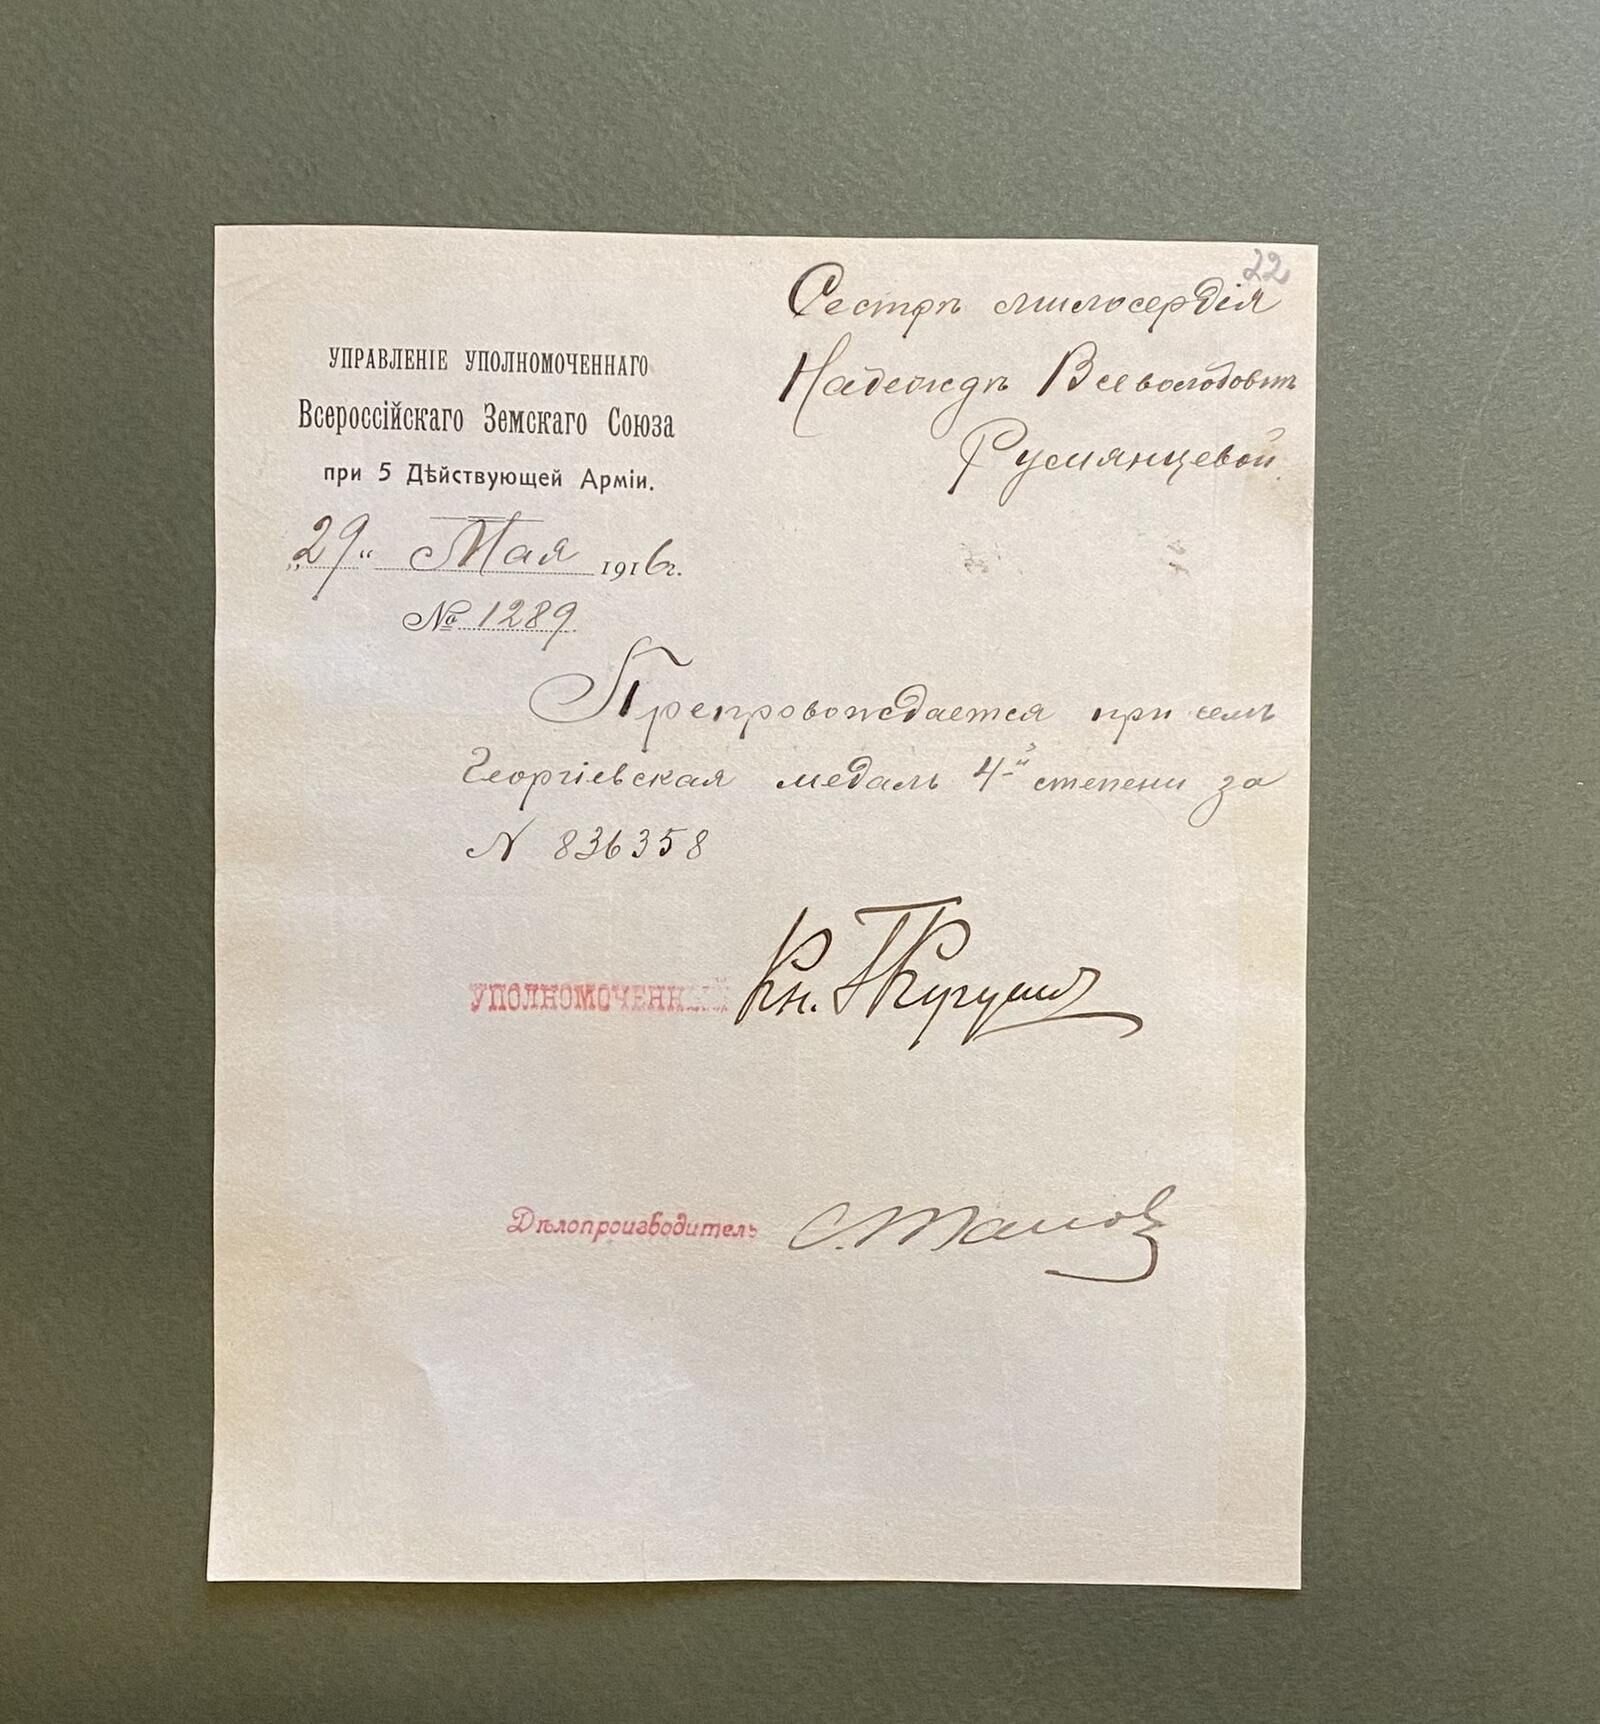 22
Сестрѣ милосердія
Надеждѣ Всеволодовнѣ
Румянцевой.
УПРАВЛЕНІЕ УПОЛНОМОЧЕННАГО
Всероссійскаго Земскаго Союза
при 5 Дѣйствующей Арміи.
„29“ Мая 1916 г.
№ 1289
Препровождается при семъ
Георгіевская медаль 4-й степени за
N 836358
УПОЛНОМОЧЕННЫЙ Кн.
Дѣлопроизводитель С.